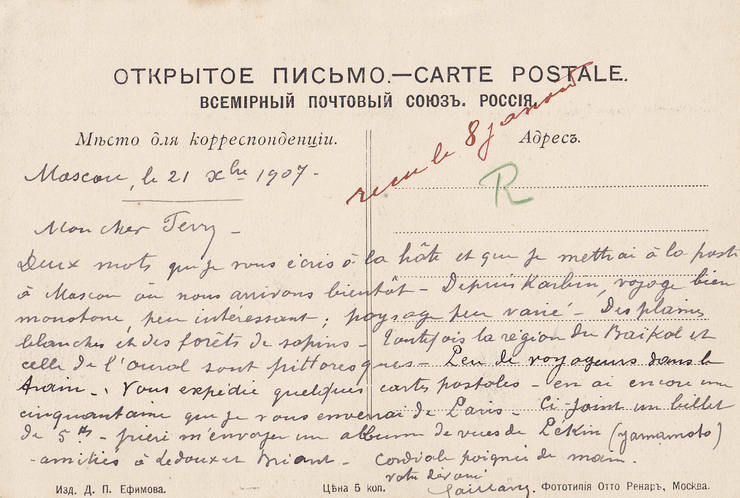 ОТКРЫТОЕ ПИСЬМО.—CARTE POSTALE.
ВСЕМІРНЫЙ ПОЧТОВЫЙ СОЮЗЪ. РОССІЯ.
Мѣсто для корреспонденціи.
Адресъ.
reçu le 8 janvier
R
Moscou, le 21 Xbre 1907 -
Mon cher Terry -
Deux mots que je vous écris à la hâte et que je mettrai à la poste
à Moscou où nous arrivons bientôt - Depuis Karbin, voyage bien
monotone, peu intéressant; paysage peu varié - Des plaines
blanches et des forêts de sapins - Toutefois la région du Baïkal et
celle de l'oural sont pittoresques - Peu de voyageurs dans le
train - Vous expédie quelques cartes postales - en ai encore une
cinquantaine que je vous enverrai de Paris - Ci-joint un billet
de 5 - prière m'envoyer un album de vues de Pékin (yamamoto)
- amitiés à Ledoux et Briant - Cordiale poignée de main.
votre dévoué
Изд. Д. П. Ефимова.
Цѣна 5 коп.
Фототипія Отто Ренаръ, Москва.